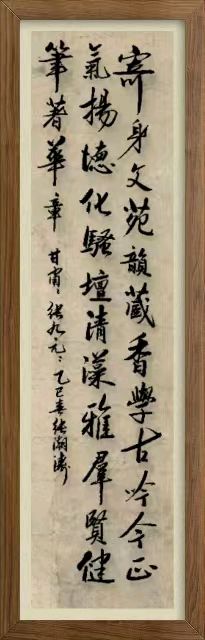 寄身文苑韻藏香學古吟今正
氣揚德化騷壇清藻雅羣賢健
筆著華章 甘肅：張九元：乙巳春張濤